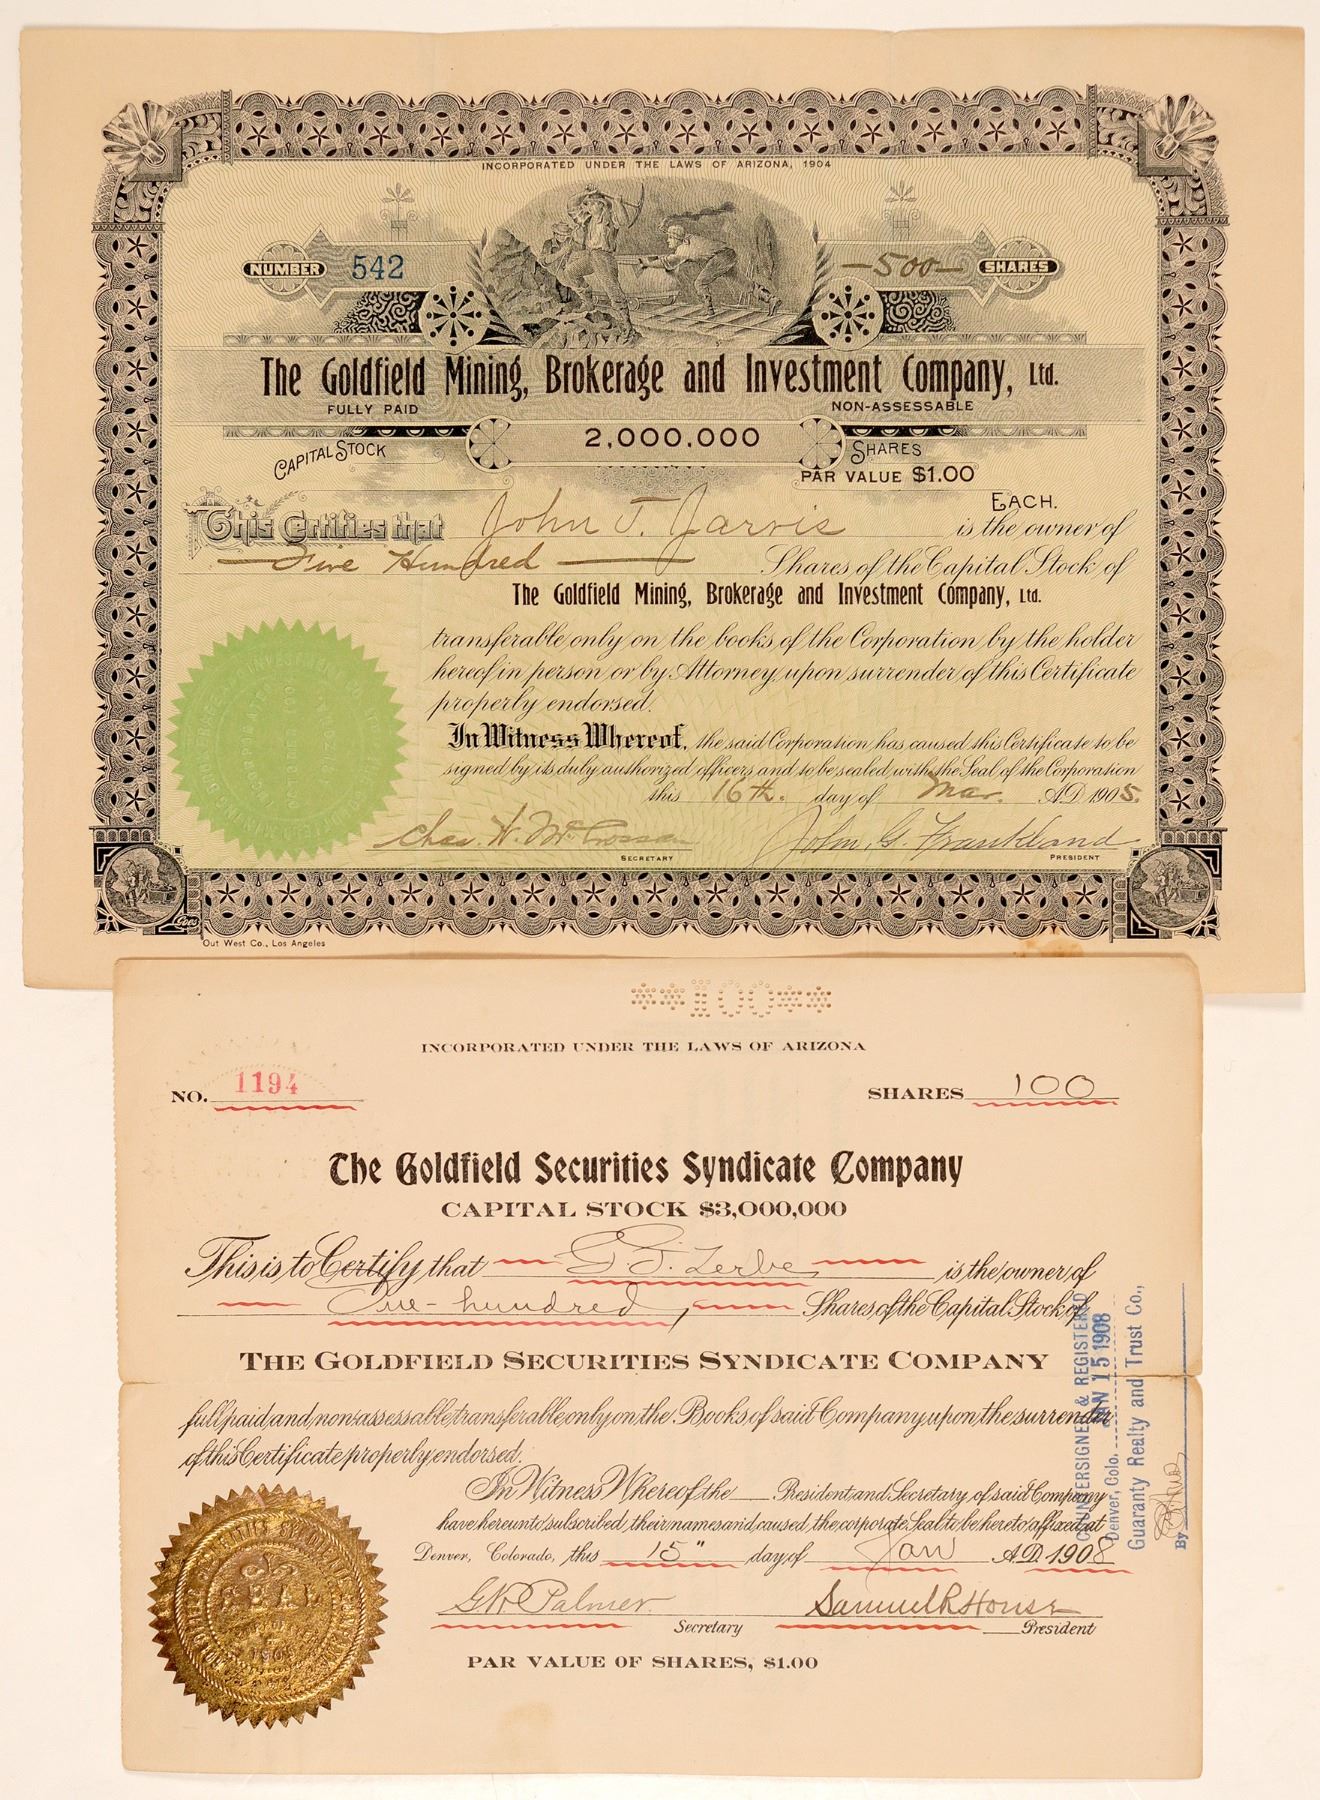 INCORPORATED UNDER THE LAWS OF ARIZONA, 1904
NUMBER 542 —500— SHARES
The Goldfield Mining, Brokerage and Investment Company, Ltd.
FULLY PAID NON-ASSESSABLE
CAPITAL STOCK 2,000,000 SHARES
PAR VALUE $1.00
EACH.
This Certifies that John T. Jarvis is the owner of
—Five Hundred— Shares of the Capital Stock of
The Goldfield Mining, Brokerage and Investment Company, Ltd.
transferable only on the books of the Corporation by the holder
hereof in person or by Attorney upon surrender of this Certificate
properly endorsed.
In Witness Whereof, the said Corporation has caused this Certificate to be
signed by its duly authorized officers and to be sealed with the Seal of the Corporation
this 16th. day of Mar. A.D. 1905.
Chas. H. John G. Frankland
SECRETARY PRESIDENT
Out West Co., Los Angeles
100
INCORPORATED UNDER THE LAWS OF ARIZONA
NO. 1194 SHARES 100
The Goldfield Securities Syndicate Company
CAPITAL STOCK $3,000,000
This is to Certify that Zerbe is the owner of
One-hundred Shares of the Capital Stock of
THE GOLDFIELD SECURITIES SYNDICATE COMPANY
full paid and non-assessable transferable only on the Books of said Company upon the surrender
of this Certificate properly endorsed.
In Witness Whereof the President and Secretary of said Company
have hereunto subscribed their names and caused the corporate Seal to be hereto affixed at
Denver, Colorado, this 15" day of Jan A.D. 1908
Palmer Samuel R House
Secretary President
PAR VALUE OF SHARES, $1.00
SEAL
COUNTERSIGNED & REGISTERED
JAN 15 1908
Denver, Colo.
Guaranty Realty and Trust Co.,
By